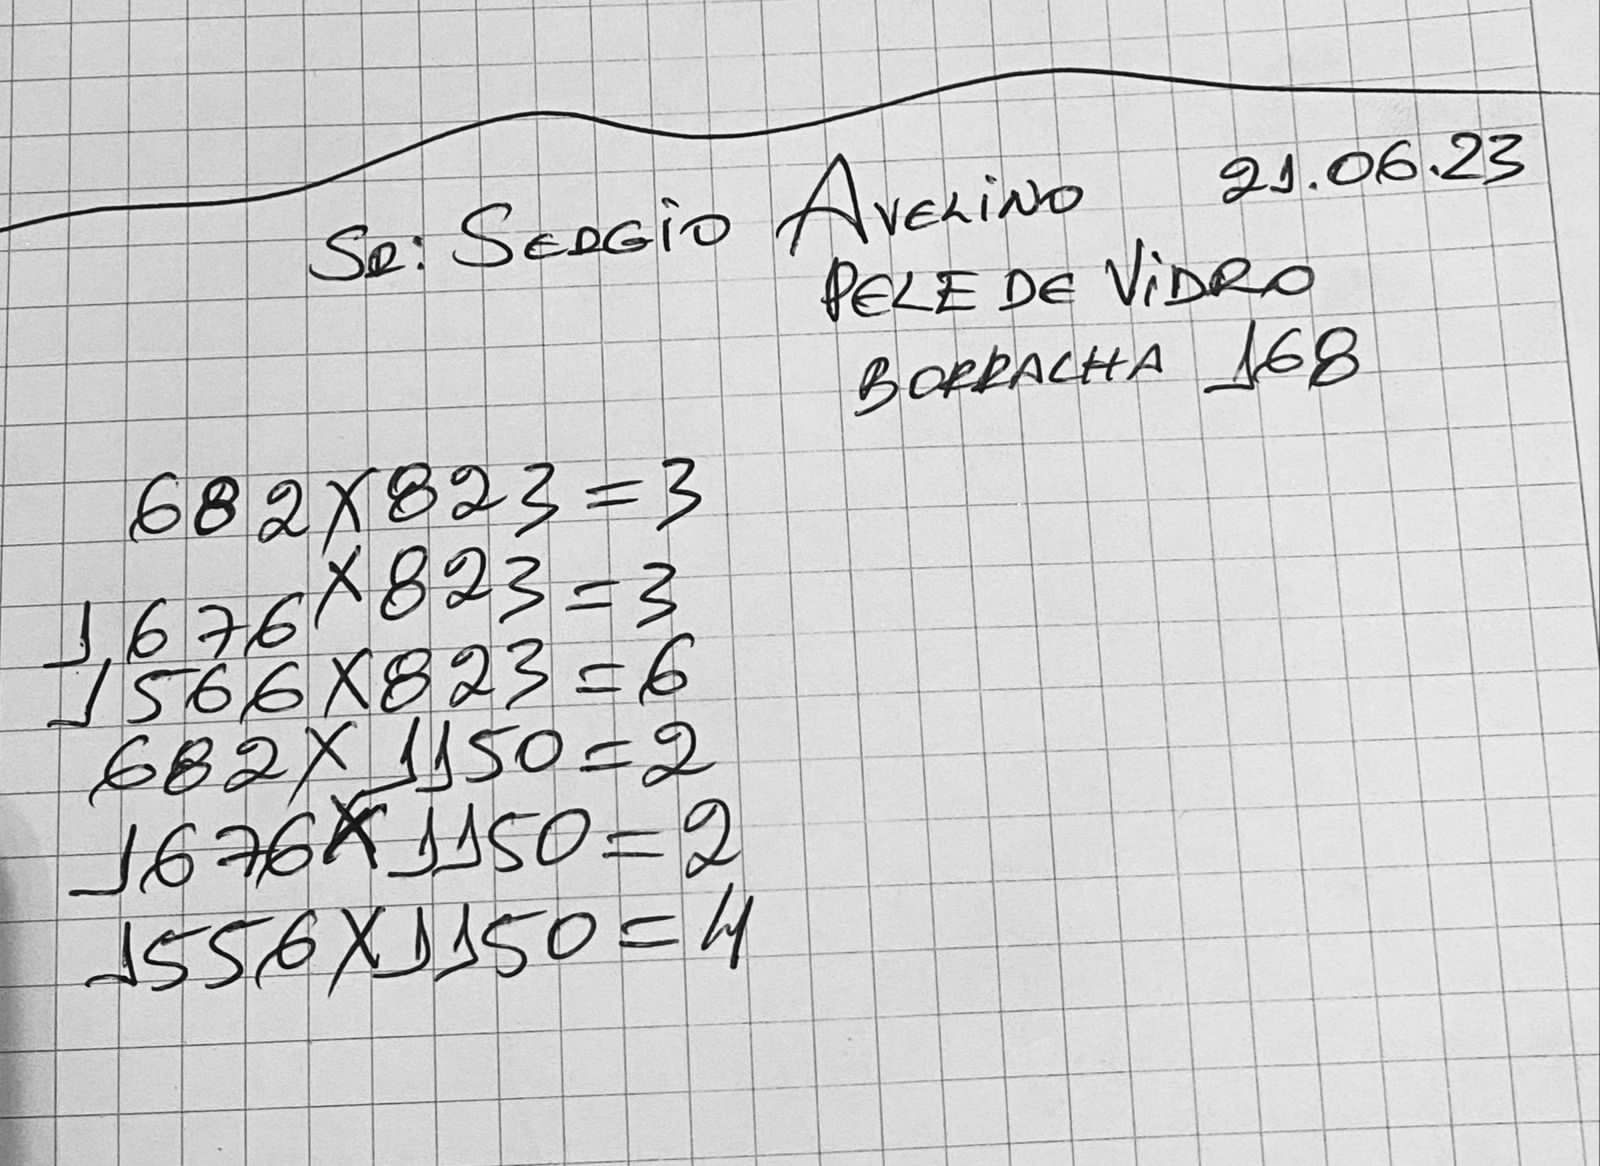 SR: SERGiO AVELiNO 21.06.23
PELE DE ViDRO
BORRACHA 168
682X823=3
1676X823=3
1566X823=6
682X1150=2
1676X1150=2
1556X1150=4